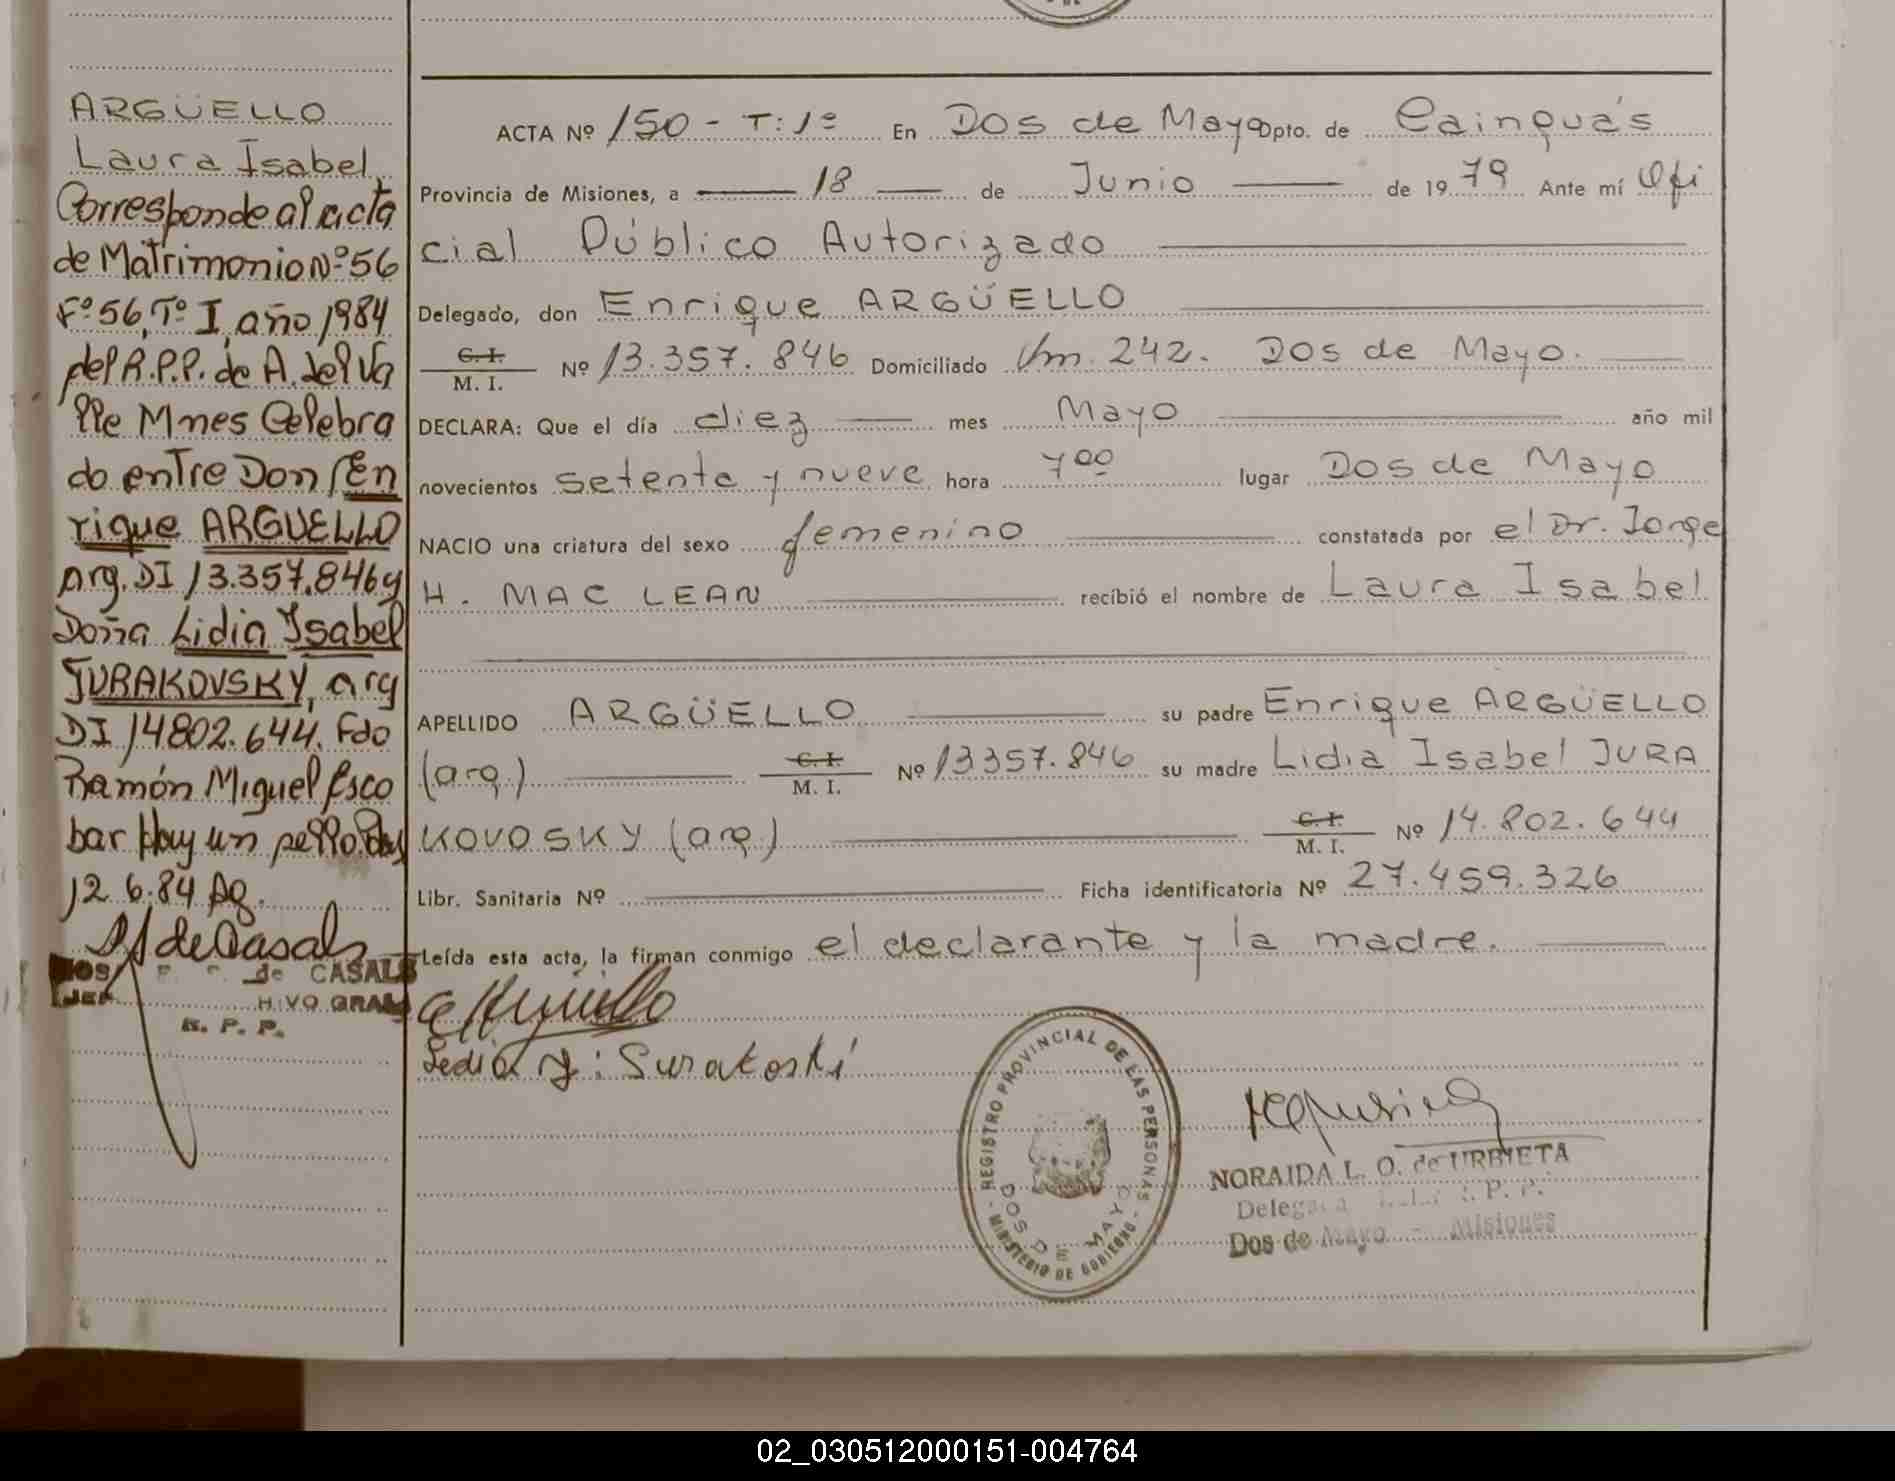 ARGÜELLO
Laura Isabel
Corresponde al acta
de Matrimonio Nº 56
Fº 56, Tº I, año 1984
del R.P.P. de A. del Va
lle Mnes Celebra
do entre Don En
rique ARGUELLO
Arg. DI 13.357.846 y
Doña Lidia Isabel
JURAKOVSKY, arg
DI 14802.644. Fdo
Ramón Miguel Esco
bar Hay un sello
12.6.84
de Casals
de CASALS
R. P. P.
ACTA Nº 150 - T: 1º En Dos de Mayo Dpto. de Cainguás
Provincia de Misiones, a 18 de Junio de 1979 Ante mí Ofi
cial Público Autorizado
Delegado, don Enrique ARGÜELLO
C. I. M. I. Nº 13.357.846 Domiciliado Km. 242. Dos de Mayo.
DECLARA: Que el día diez mes Mayo año mil
novecientos setenta y nueve hora 7 00 lugar Dos de Mayo
NACIO una criatura del sexo femenino constatada por el Dr. Jorge
H. MAC LEAN recibió el nombre de Laura Isabel
APELLIDO ARGÜELLO su padre Enrique ARGÜELLO
(arg.) C. I. M. I. Nº 13357.846 su madre Lidia Isabel JURA
KOVOSKY (arg.) C. I. M. I. Nº 14.802.644
Libr. Sanitaria Nº Ficha identificatoria Nº 27.459.326
Leída esta acta, la firman conmigo el declarante y la madre.
REGISTRO PROVINCIAL DE LAS PERSONAS
DOS DE MAYO
- MINISTERIO DE GOBIERNO -
NORAIDA L. O. de URBIETA
Delegada P. P.
Dos de Mayo - Misiones
02_030512000151-004764